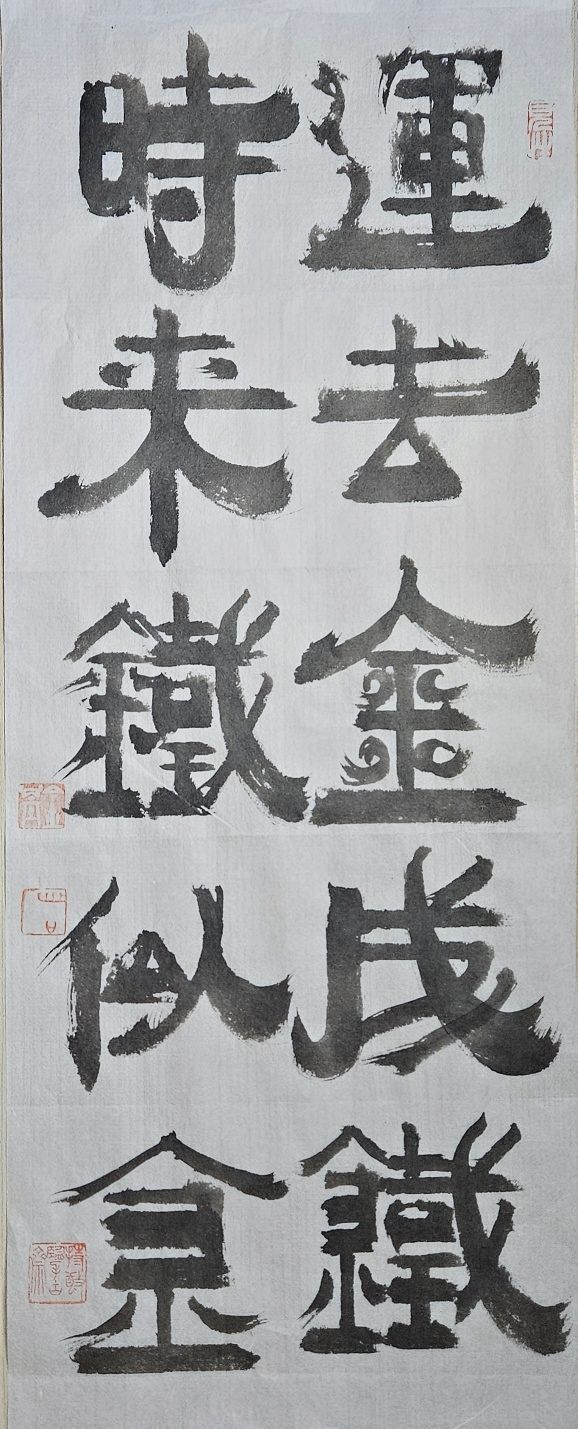 運去金成鐵
時来鐵似金